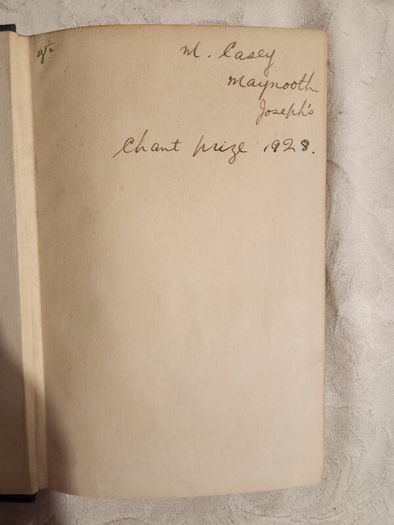 M. Casey
Maynooth.
Joseph's
Chant prize 1928.